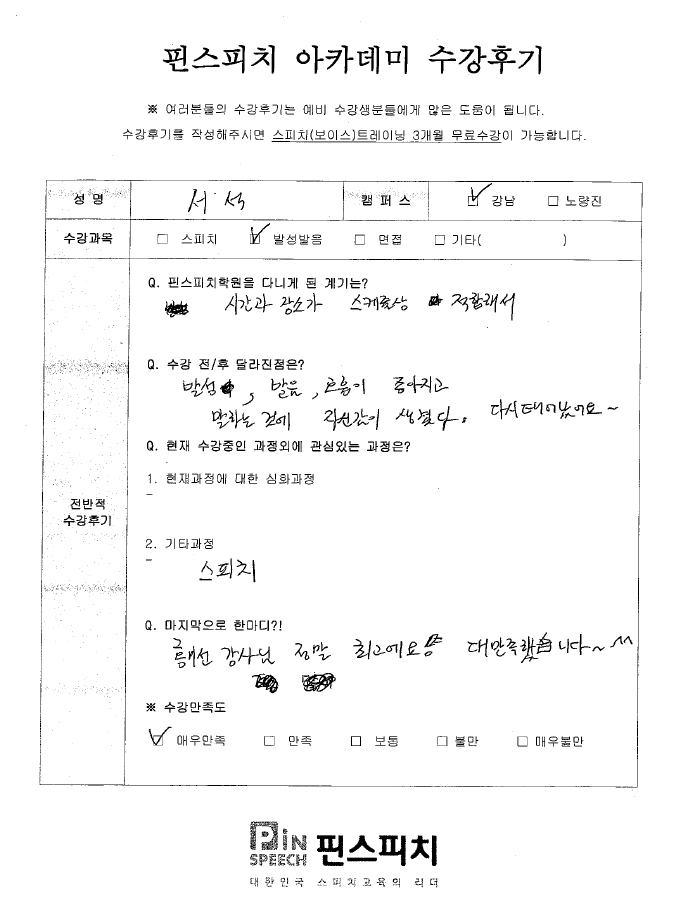 핀스피치 아카데미 수강후기
※ 여러분들의 수강후기는 예비 수강생분들에게 많은 도움이 됩니다.
수강후기를 작성해주시면 스피치(보이스)트레이닝 3개월 무료수강이 가능합니다.
성 명 서석 캠 퍼 스 ☑ 강남 □ 노량진
수강과목 □ 스피치 ☑ 발성발음 □ 면접 □ 기타( )
전반적
수강후기
Q. 핀스피치학원을 다니게 된 계기는?
시간과 장소가 스케쥴상 적합해서
Q. 수강 전/후 달라진점은?
발성, 발음, 호흡이 좋아지고
말하는 것에 자신감이 생겼다. 다시태어났어요~
Q. 현재 수강중인 과정외에 관심있는 과정은?
1. 현재과정에 대한 심화과정
-
2. 기타과정
-
스피치
Q. 마지막으로 한마디?!
강사님 정말 최고에요 대만족했습니다~ ^^
※ 수강만족도
☑ 매우만족 □ 만족 □ 보통 □ 불만 □ 매우불만
PiN
SPEECH 핀스피치
대한민국 스피치교육의 리더